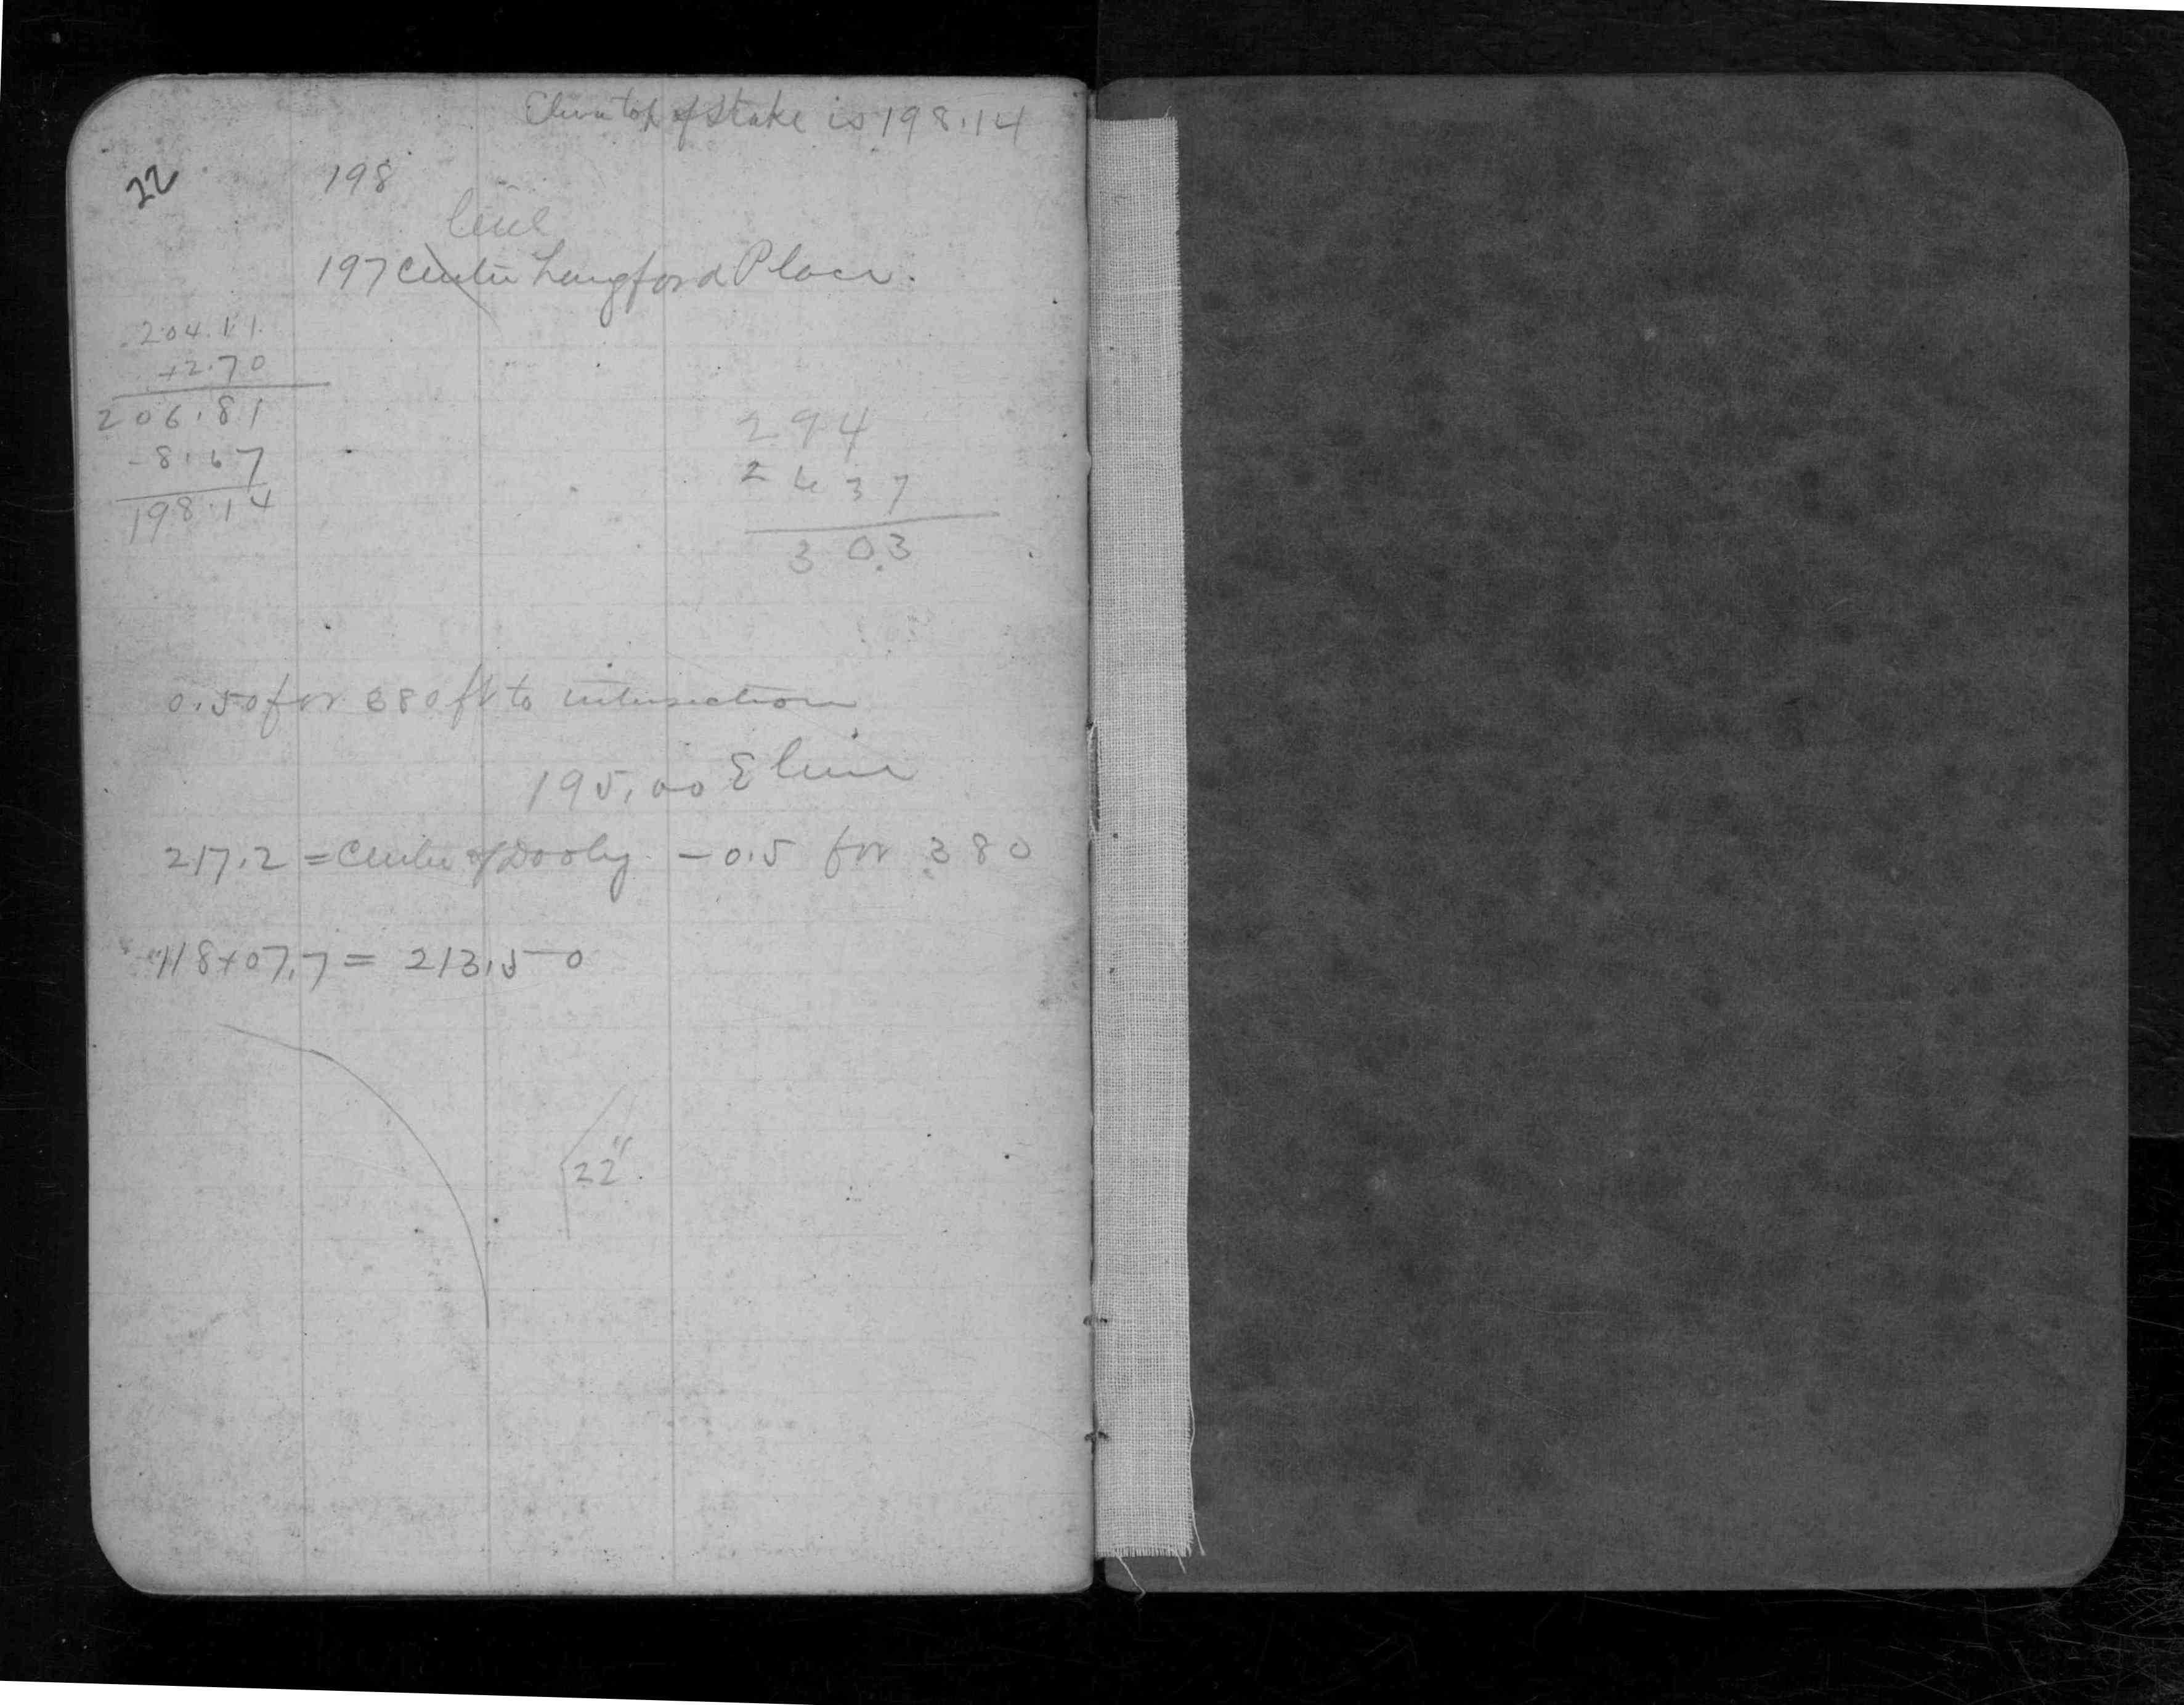 Eleva top of stake is 198.14
22
198
line
197 Center Langford Place.
204.11
+2.70
206.81
-8.67
198.14
294
2 6 37
3 03
0.50 for 380 ft to intersection
195.00 E line
217.2 = Center of Dooly - 0.5 for 380
118+07.7 = 213.50
22"